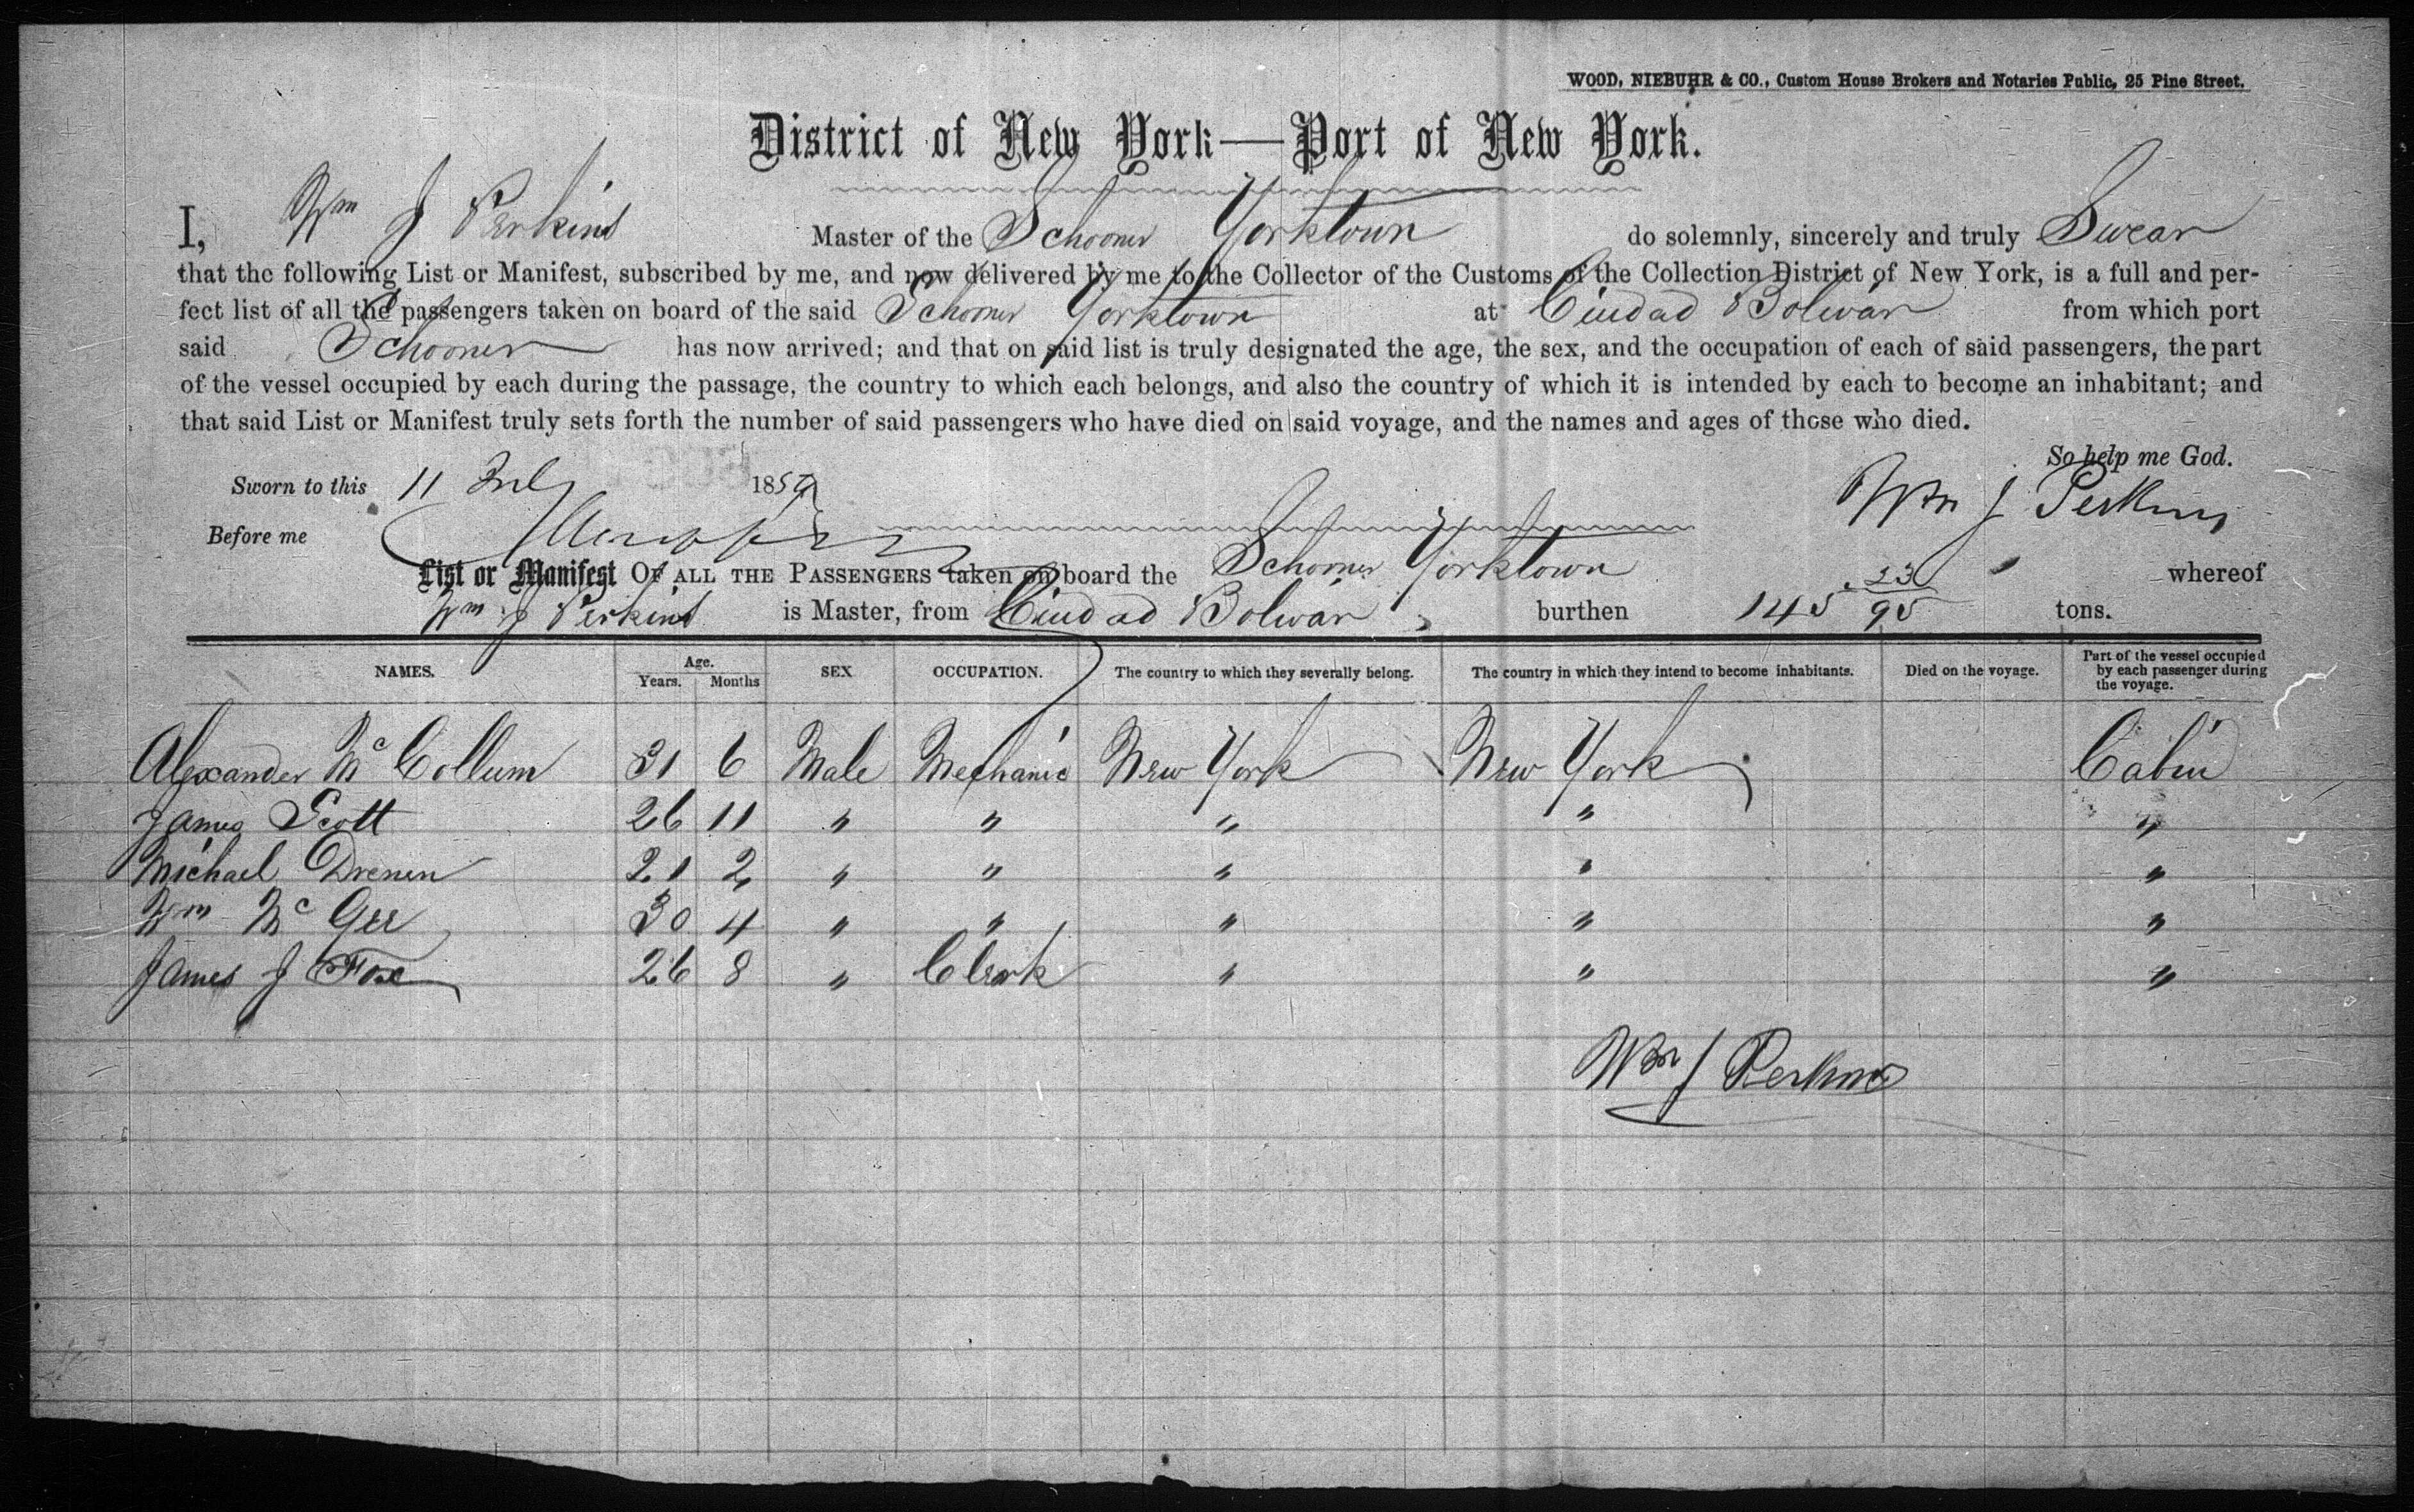 WOOD, NIEBUHR & CO., Custom House Brokers and Notaries Public, 25 Pine Street.
District of New York—Port of New York.
I, Wm J Perkins Master of the Schooner Yorktown do solemnly, sincerely and truly Swear
that the following List or Manifest, subscribed by me, and now delivered by me to the Collector of the Customs of the Collection District of New York, is a full and per-
fect list of all the passengers taken on board of the said Schooner Yorktown at Ciudad Bolivar from which port
said Schooner has now arrived; and that on said list is truly designated the age, the sex, and the occupation of each of said passengers, the part
of the vessel occupied by each during the passage, the country to which each belongs, and also the country of which it is intended by each to become an inhabitant; and
that said List or Manifest truly sets forth the number of said passengers who have died on said voyage, and the names and ages of those who died.
So help me God.
Sworn to this 11 July 1859 Wm J Perkins
Before me
List or Manifest OF ALL THE PASSENGERS taken on board the Schooner Yorktown whereof
Wm J Perkins is Master, from Ciudad Bolivar burthen 145 23/95 tons.
NAMES. Age. Years. Months SEX OCCUPATION. The country to which they severally belong. The country in which they intend to become inhabitants. Died on the voyage. Part of the vessel occupied by each passenger during the voyage.
Alexander Mc Collum 31 6 Male Mechanic New York New York Cabin
James Scott 26 11 " " " " "
Michael Drenen 21 2 " " " " "
Wm Mc Gee 30 4 " " " " "
James J Fox 26 8 " Clerk " " "
Wm J Perkins